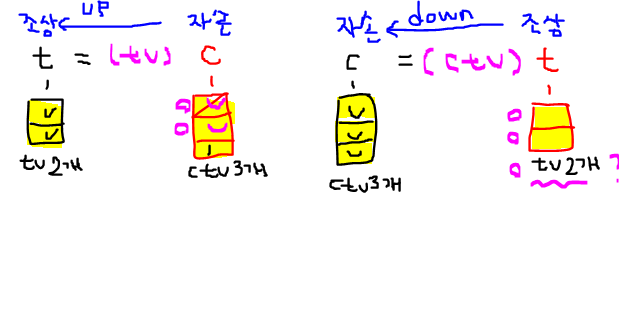 조상 up 자손
t = (tv) c
tv 2개 ctv 3개
자손 down 조상
c = (ctv) t
ctv 3개 tv 2개 ?